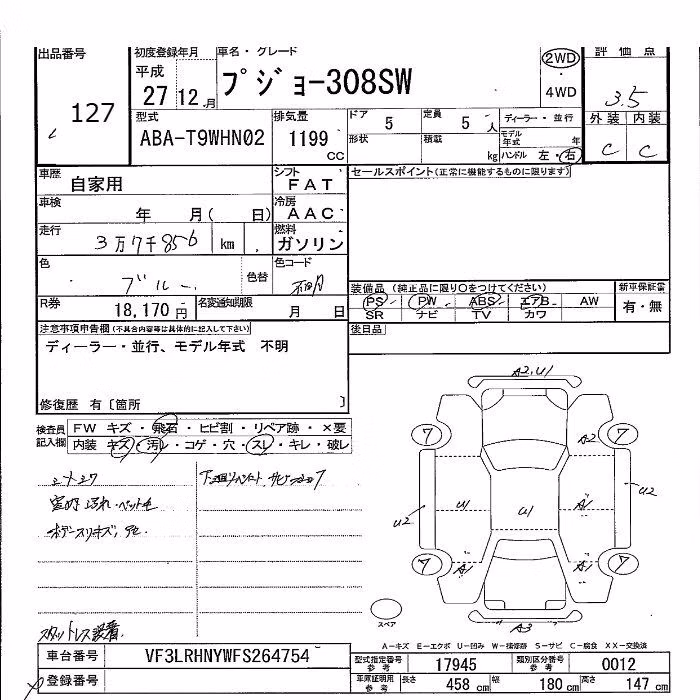 出品番号
127
初度登録年月
平成
27 12 月
車名・グレード
プジョー308SW
2WD
・
4WD
評価点
3.5
外装 内装
C C
型式
ABA-T9WHN02
排気量
1199
CC
ドア
5
定員
5 人
形状
積載
kg
ディーラー・並行
モデル年式 年
ハンドル 左・右
車歴
自家用
シフト
FAT
車検
年 月( 日)
冷房
AAC
走行
3万7千856 km
燃料
ガソリン
色
ブルー
色替
色コード
不明
R券
18,170 円
名変通知期限
月 日
セールスポイント(正常に機能するものに限ります)
装備品 (純正品に限り○をつけてください)
PS PW ABS エアB AW
SR ナビ TV カワ
新車保証書
有・無
後日品
注意事項申告欄(不具合内容等は具体的に記入して下さい)
ディーラー・並行、モデル年式 不明
修復歴 有〔箇所 〕
検査員記入欄
FW キズ・飛石・ヒビ割・リペア跡・×要
内装 キズ・汚レ・コゲ・穴・スレ・キレ・破レ
スタットレス装着
A2, U1
7
7
A2
U2
U1
U1
A1
U2
7
A1
A1
7
A3
スペア
A-キズ E-エクボ U-凹み W-補修跡 S-サビ C-腐食 XX-交換済
車台番号
VF3LRHNYWFS264754
登録番号
型式指定番号 参考
17945
類別区分番号 参考
0012
車庫証明用 参考
長さ 458 cm
幅 180 cm
高さ 147 cm